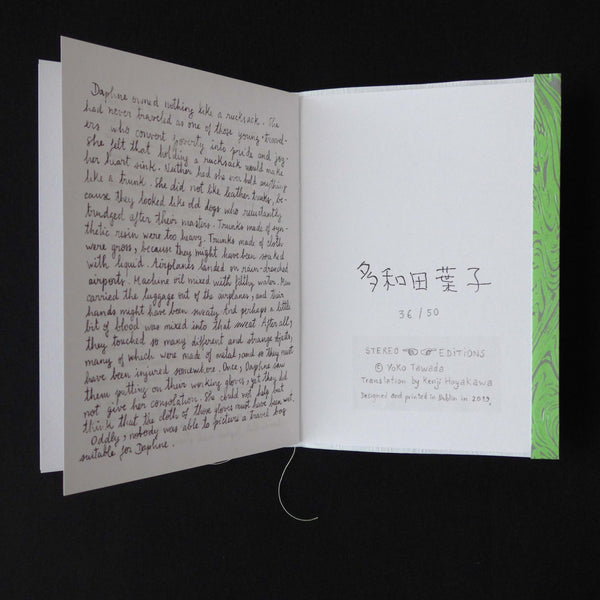 Daphne owned nothing like a rucksack. She
had never traveled as one of those young travel-
ers who convert poverty into pride and joy.
She felt that holding a rucksack would make
her heart sink. Neither had she ever held anything
like a trunk. She did not like leather trunks, be-
cause they looked like old dogs who reluctantly
trudged after their masters. Trunks made of syn-
thetic resin were too heavy. Trunks made of cloth
were gross, because they might have been soaked
with liquid. Airplanes landed on rain-drenched
airports. Machine oil mixed with filthy water. Men
carried the luggage out of the airplanes, and their
hands might have been sweaty. And perhaps a little
bit of blood was mixed into that sweat. After all,
they touched so many different and strange objects,
many of which were made of metal, and so they must
have been injured somewhere. Once, Daphne saw
them putting on their working gloves, yet they did
not give her consolation. She could not help but
think that the cloth of those gloves must have been wet.
Oddly, nobody was able to picture a travel bag
suitable for Daphne.
多和田葉子
36/50
STEREO EDITIONS
© Yoko Tawada
Translation by Kenji Hayakawa
Designed and printed in Dublin in 2019.